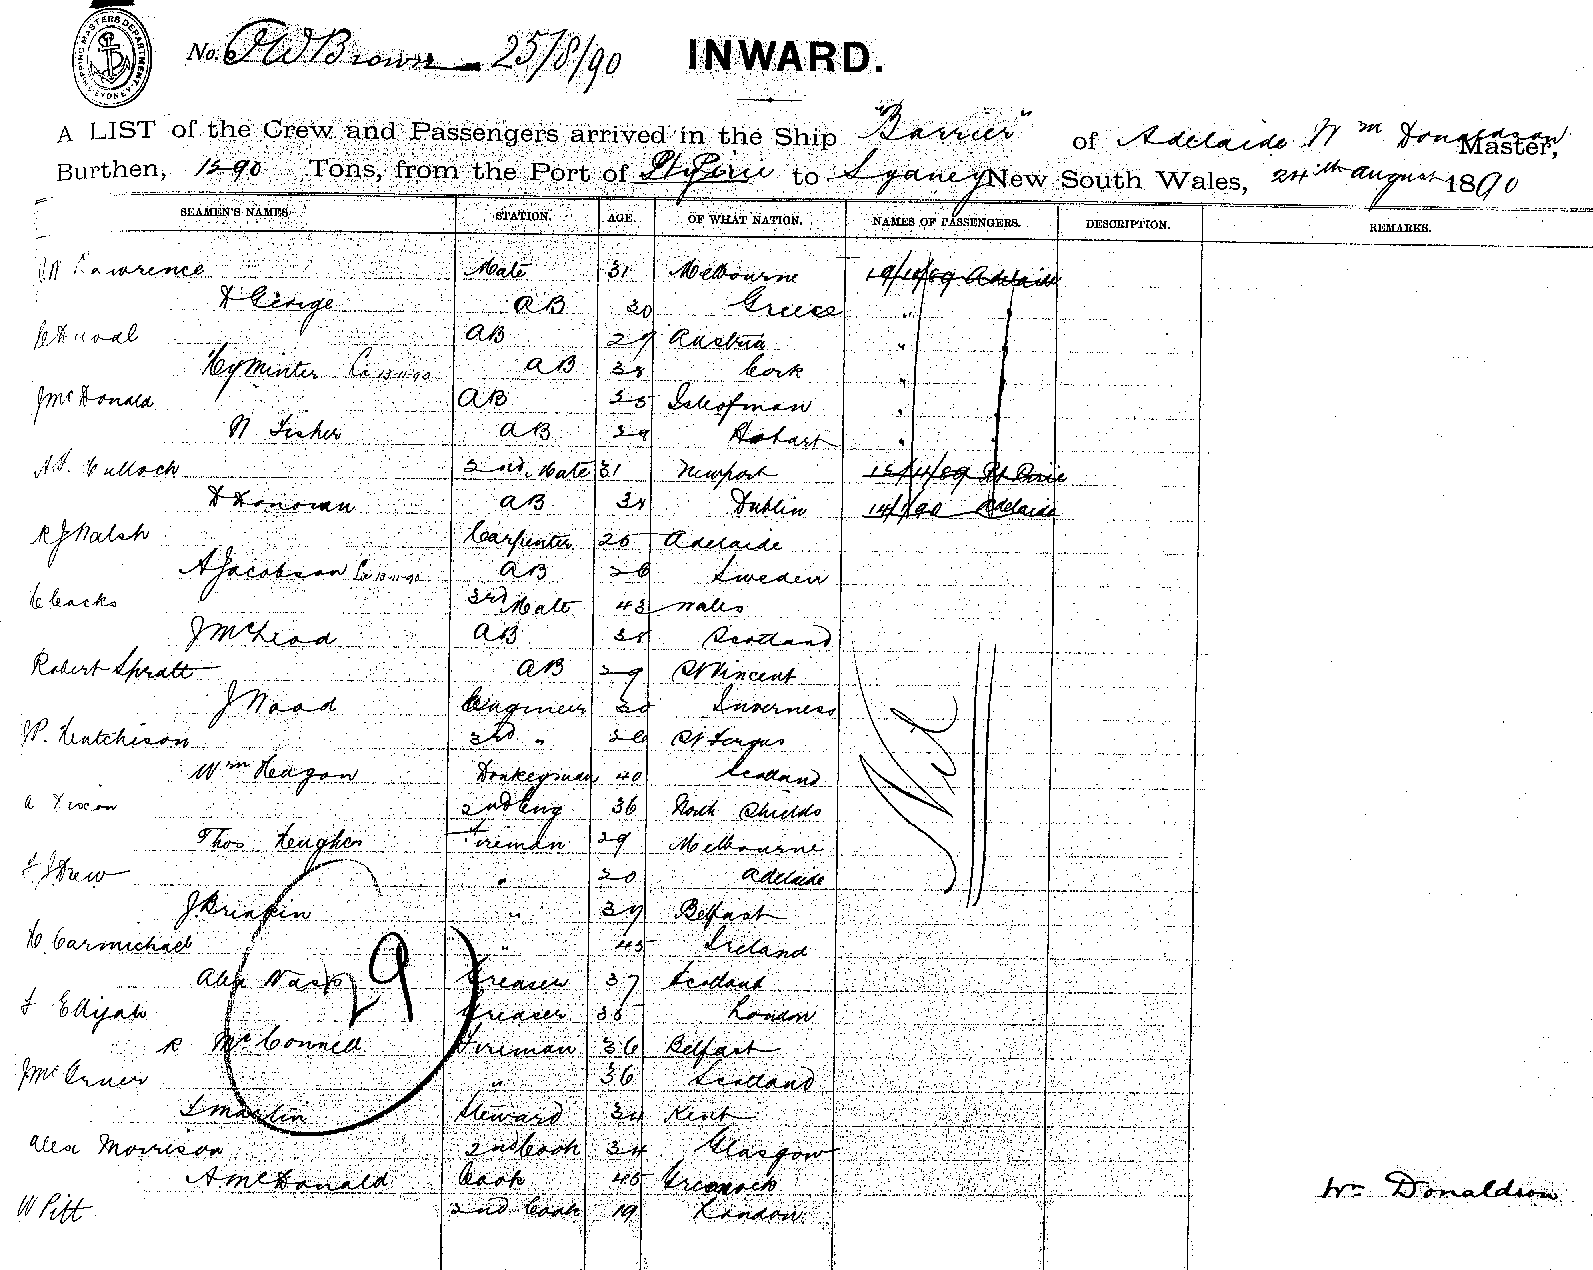 SHIPPING MASTERS DEPARTMENT SYDNEY
No. P W Brown - 25/8/90 INWARD.
A LIST of the Crew and Passengers arrived in the Ship "Barrier" of Adelaide Wm Donaldson Master,
Burthen, 1590 Tons, from the Port of Pt Pirie to Sydney New South Wales, 24th August 1890
SEAMEN'S NAMES STATION. AGE. OF WHAT NATION. NAMES OF PASSENGERS. DESCRIPTION. REMARKS.
Lawrence Mate 31 Melbourne Adelaide
D George AB 30 Greece "
AB 29 Austria "
Hy Minter AB Cork "
J McDonald AB Isle of man "
W Fisher AB 29 Hobart "
Culloch 2nd Mate 31 Newport Pt Pirie
D Donovan AB Dublin Adelaide
R J Walsh Carpenter Adelaide
A Jacobson AB 26 Sweden
C Cocks 3rd Mate 43 Wales
J McLeod AB Scotland
Robert Spratt AB 29 St Vincent
J Wood Engineer 30 Inverness
J P. Hutchison 3rd " 26 St Fergus
Wm Heagon Donkeyman 40 Scotland
A Dixon 2nd Eng 36 North Shields
Thos Hughes Fireman 29 Melbourne
J Drew " 20 Adelaide
Nil
J " Belfast
D Carmichael " 45 Ireland
Alex Nash Greaser 37 Scotland
29
Elijah Greaser London
R McConnell Fireman 36 Belfast
J Mc " 36 Scotland
Martin Steward 34 Kent
Alex Morrison 2nd Cook 34 Glasgow
A McDonald Cook 45 Greenock
Wm Donaldson
W Pitt 2nd Cook 19 London